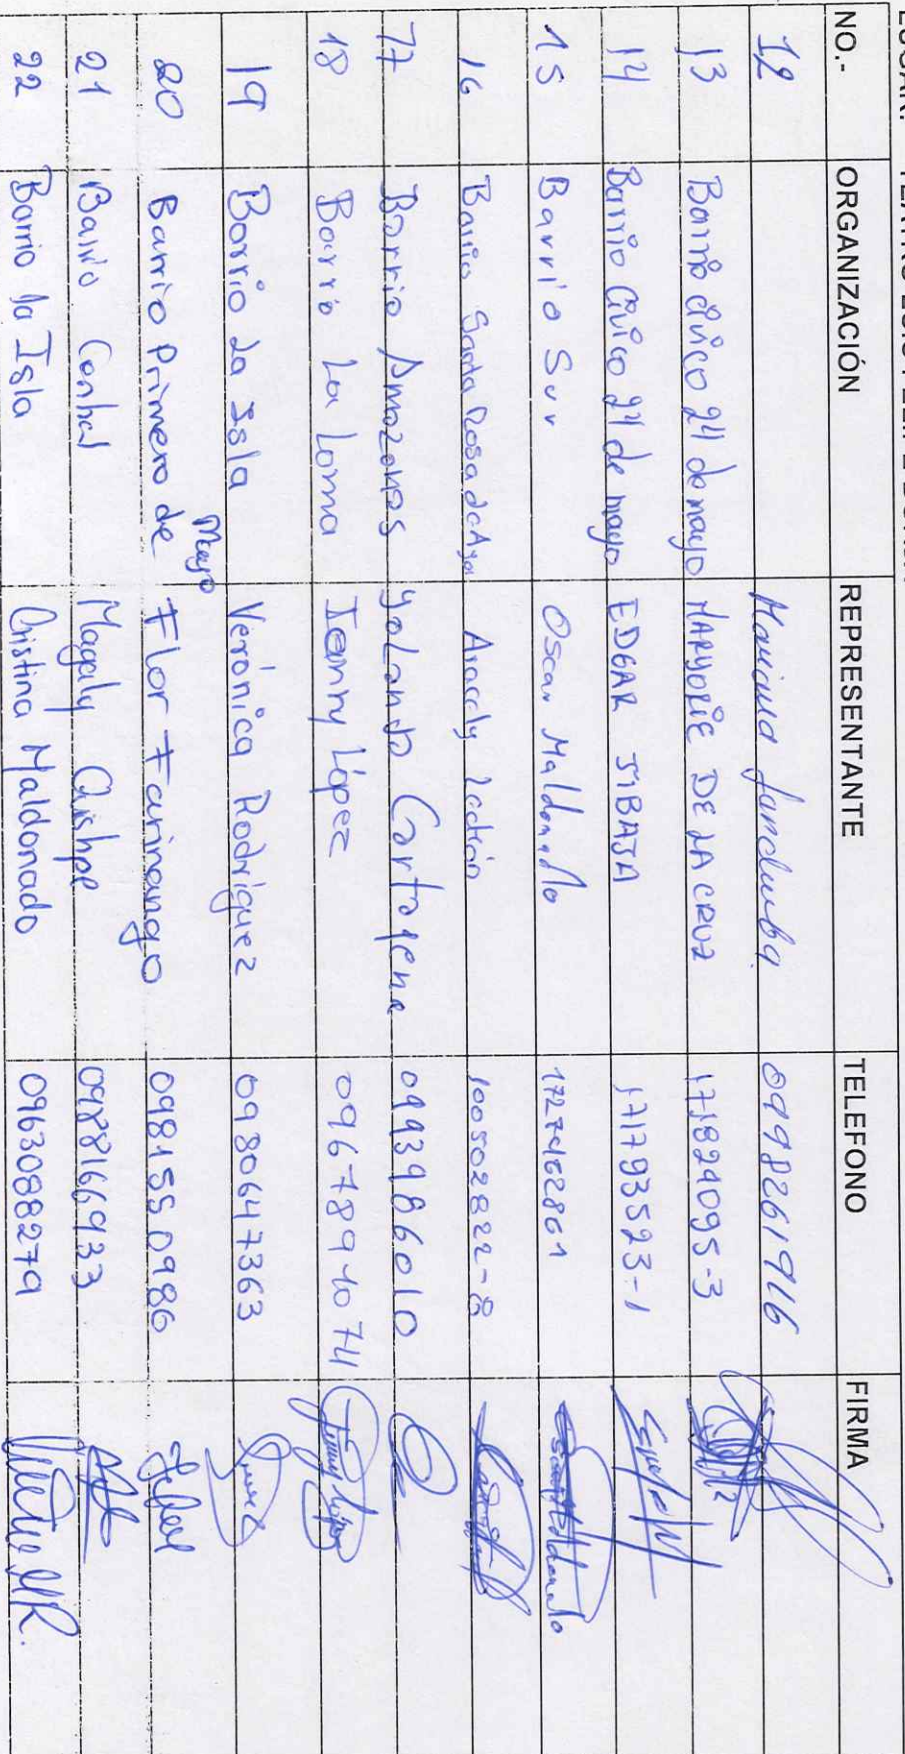 NO.- ORGANIZACIÓN REPRESENTANTE TELEFONO FIRMA
12 0998261916
13 Barrio Cívico 24 de mayo MARYORIE DE LA CRUZ 171824095-3
14 Barrio Cívico 24 de mayo EDGAR 171793523-1
15 Barrio Sur Oscar Maldonado 1727462861
16 Barrio Santa Rosa de Aracely 100502822-8
17 Barrio Amazonas Yolanda Cartagena 0993986010
18 Barrio La Loma Jenny López
19 Barrio La Isla Verónica Rodríguez 0980647363
20 Barrio Primero de Mayo Flor Farinango 0981550986
21 Barrio Central Magaly Quishpe 0988166933
22 Barrio la Isla Cristina Maldonado 0963088279